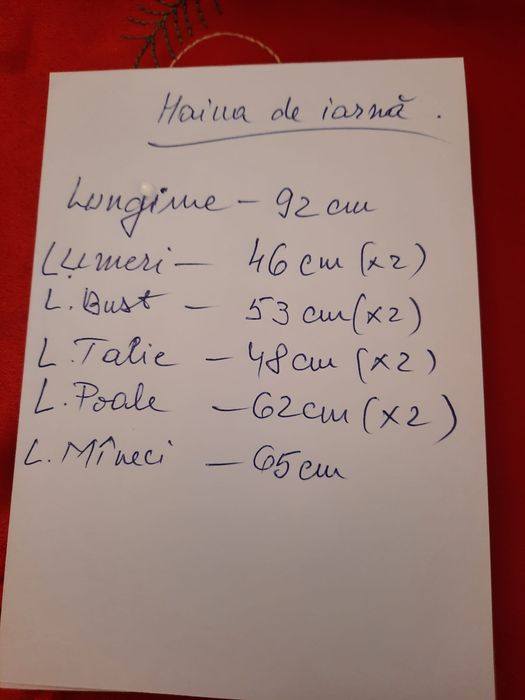 Haina de iarnă.
Lungime – 92 cm
L.umeri – 46 cm (x2)
L. Bust – 53 cm (x2)
L. Talie – 48 cm (x2)
L. Poale – 62 cm (x2)
L. Mîneci – 65 cm